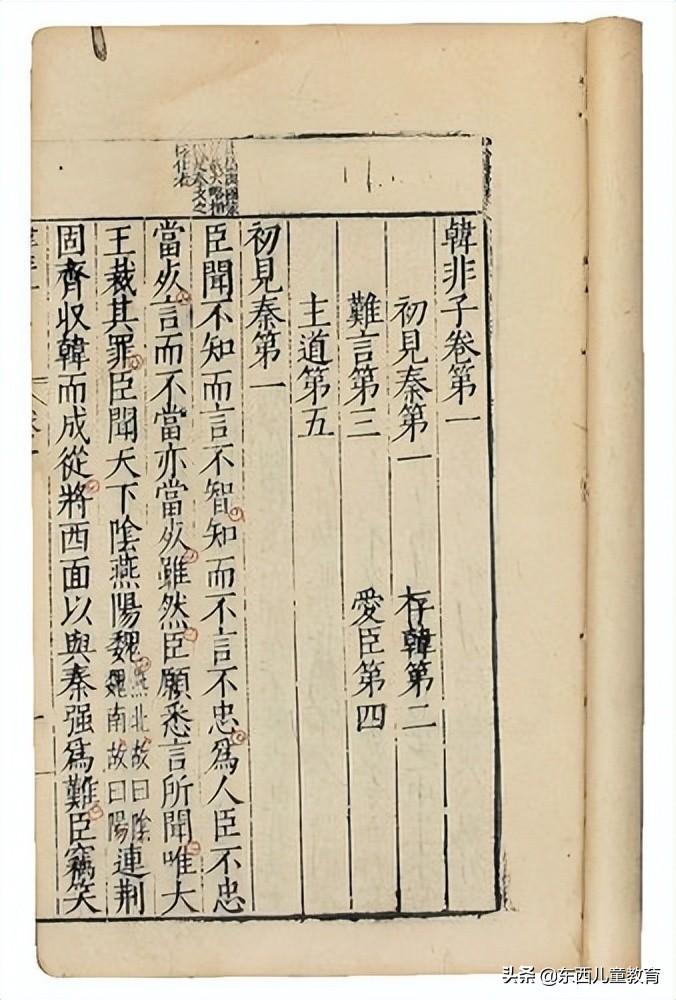 韓非子卷第一
初見秦第一 存韓第二
難言第三 愛臣第四
主道第五
初見秦第一
臣聞不知而言不智知而不言不忠爲人臣不忠
當死言而不當亦當死雖然臣願悉言所聞唯大
王裁其罪臣聞天下陰燕陽魏燕北故曰陰魏南故曰陽連荆
固齊收韓而成從將西面以與秦强爲難臣竊笑
头条 @东西儿童教育